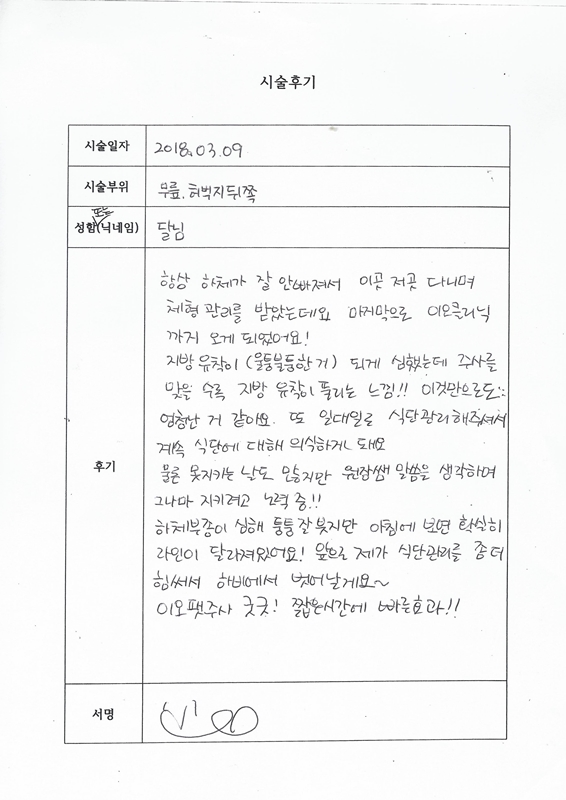 시술후기
시술일자 2018.03.09
시술부위 무릎, 허벅지뒤쪽
성함(닉네임) 달님
또는
후기
항상 하체가 잘 안빠져서 이곳 저곳 다니며
체형 관리를 받았는데요 마지막으로 이오클리닉
까지 오게 되었어요!
지방 유착이 (울퉁불퉁한 거) 되게 심했는데 주사를
맞을 수록 지방 유착이 풀리는 느낌!! 이것만으로도..
엄청난 거 같아요. 또 일대일로 식단관리해주셔서
계속 식단에 대해 의식하게 돼요
물론 못지키는 날도 많지만 원장쌤 말씀을 생각하며
그나마 지키려고 노력 중!!
하체부종이 심해 퉁퉁 잘 붓지만 아침에 보면 확실히
라인이 달라져있어요! 앞으로 제가 식단관리를 좀 더
힘써서 하비에서 벗어날게요~
이오팻주사 굿굿! 짧은시간에 빠른효과!!
서명